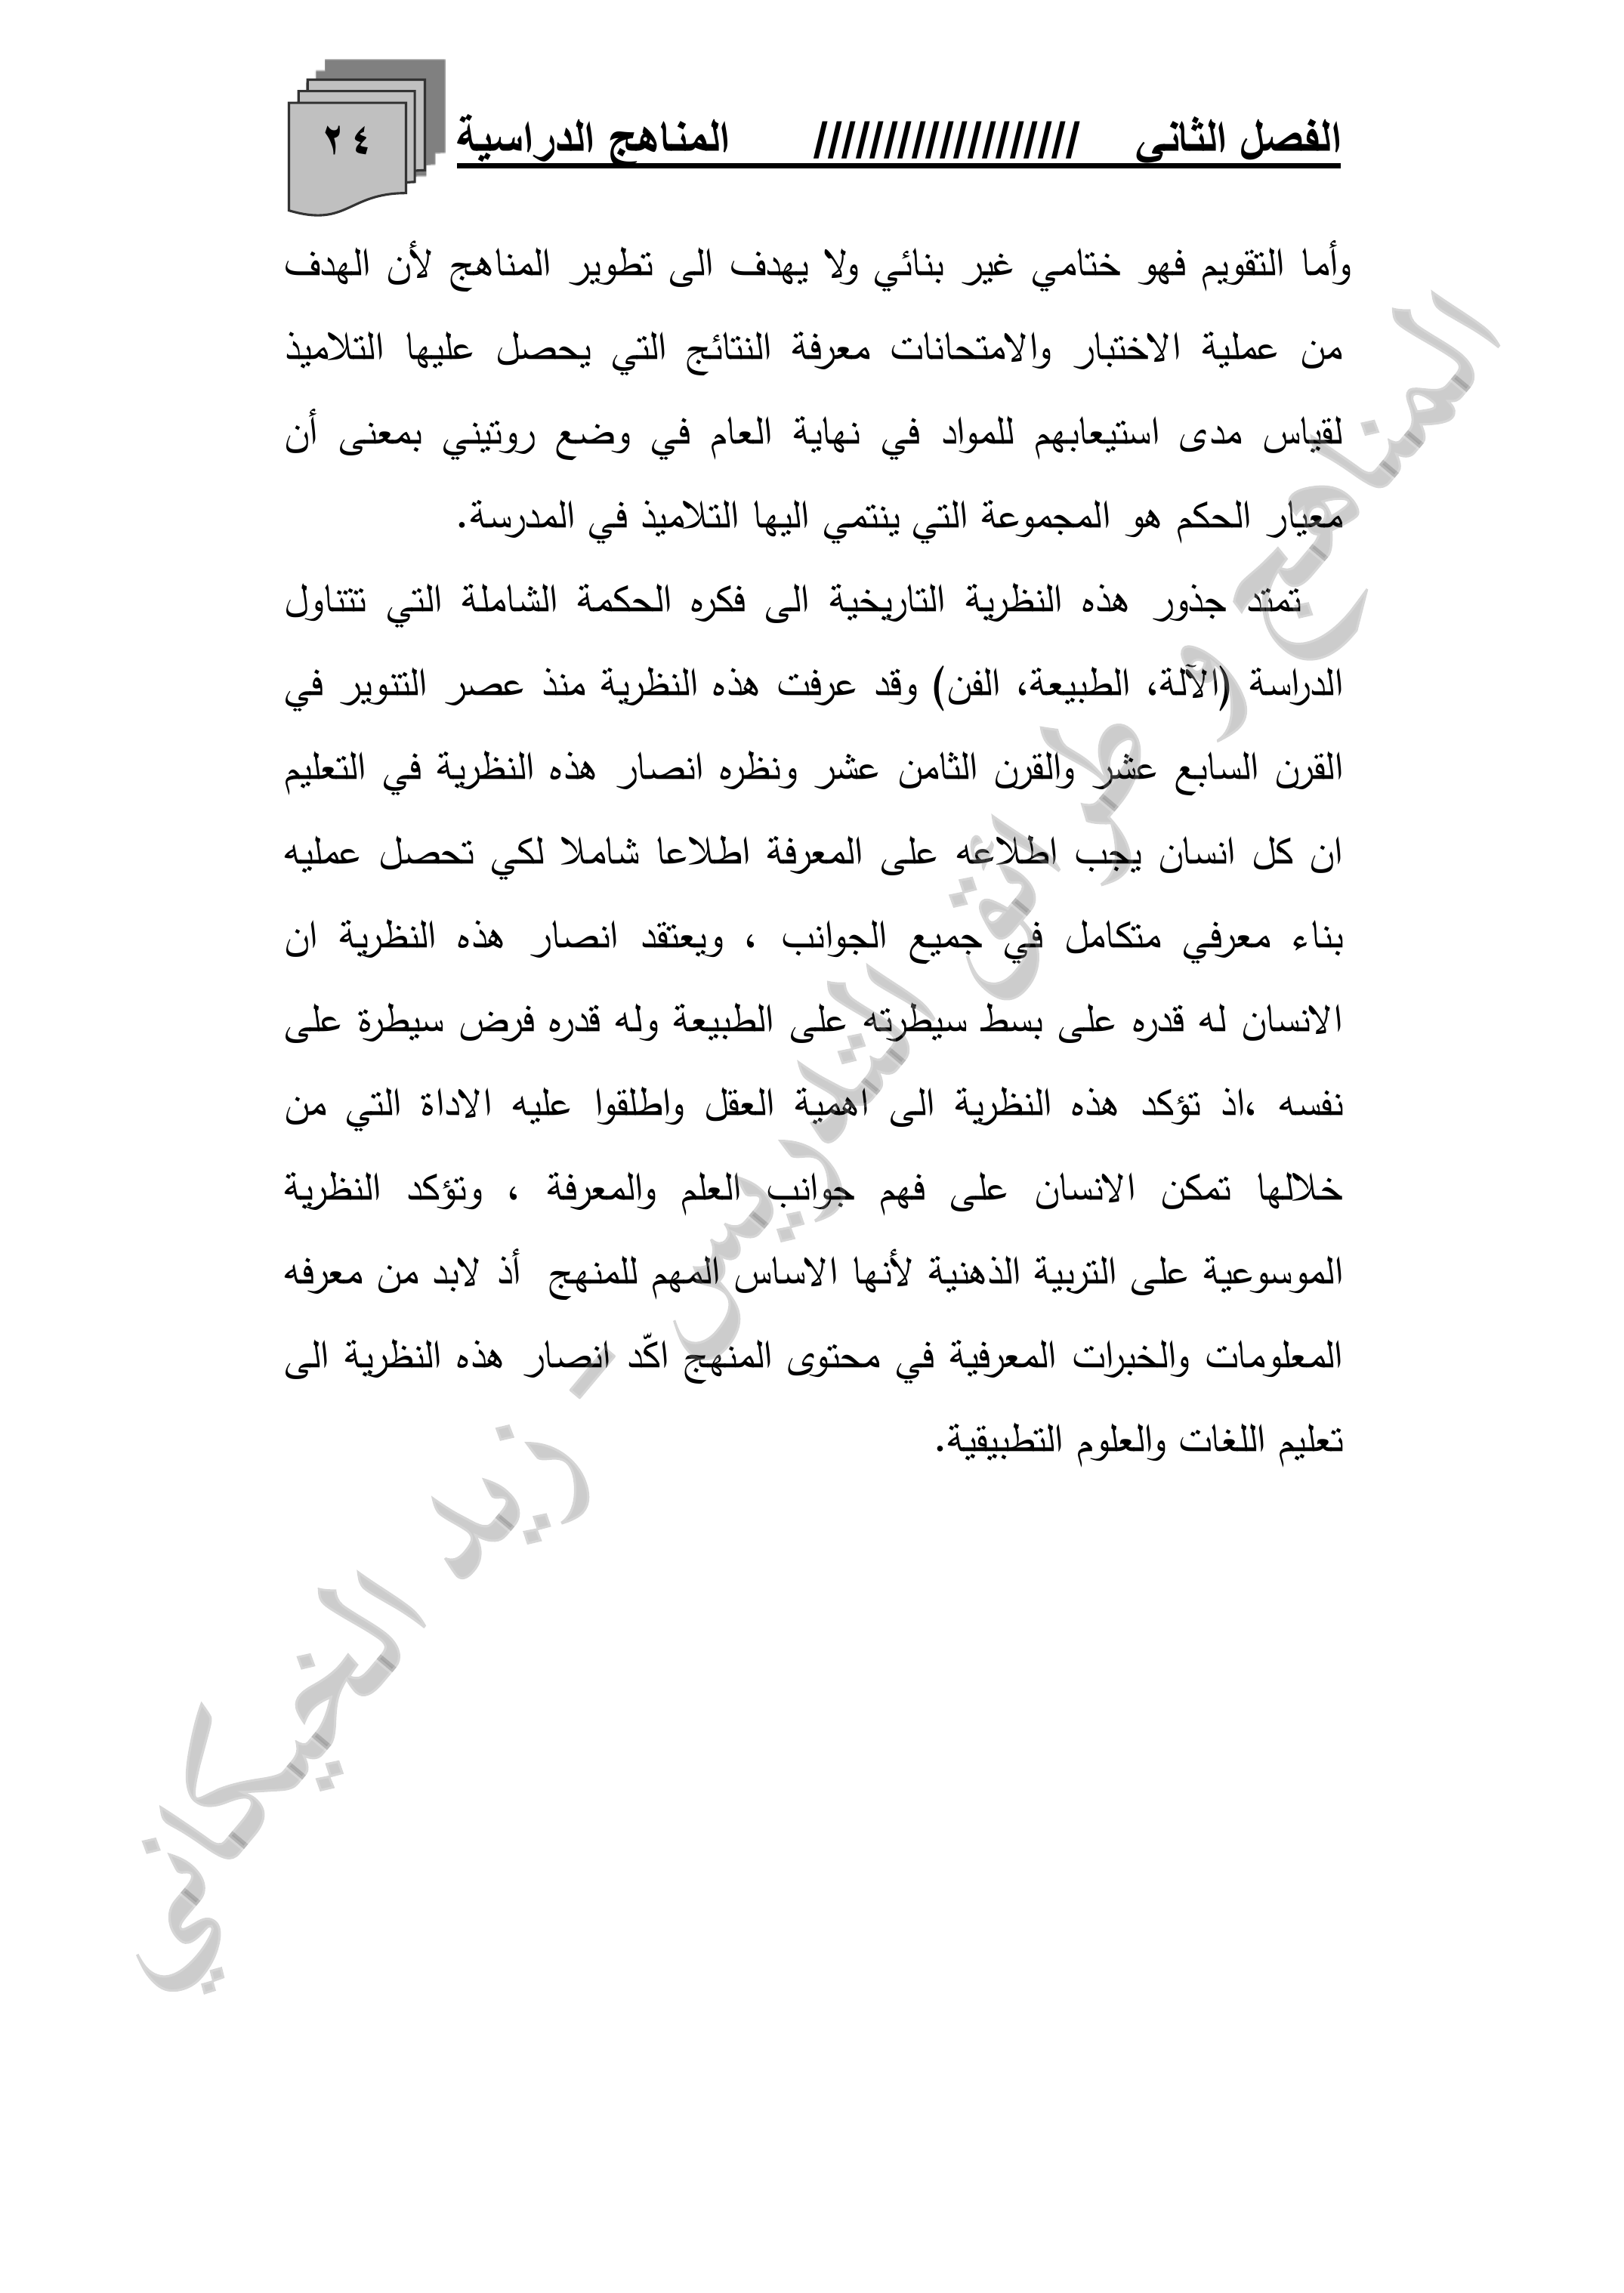 الفصل الثاني /////////////////// المناهج الدراسية
٢٤
وأما التقويم فهو ختامي غير بنائي ولا يهدف الى تطوير المناهج لأن الهدف
من عملية الاختبار والامتحانات معرفة النتائج التي يحصل عليها التلاميذ
لقياس مدى استيعابهم للمواد في نهاية العام في وضع روتيني بمعنى أن
معيار الحكم هو المجموعة التي ينتمي اليها التلاميذ في المدرسة.
تمتد جذور هذه النظرية التاريخية الى فكره الحكمة الشاملة التي تتناول
الدراسة (الآلة، الطبيعة، الفن) وقد عرفت هذه النظرية منذ عصر التنوير في
القرن السابع عشر والقرن الثامن عشر ونظره انصار هذه النظرية في التعليم
ان كل انسان يجب اطلاعه على المعرفة اطلاعا شاملا لكي تحصل عمليه
بناء معرفي متكامل في جميع الجوانب ، ويعتقد انصار هذه النظرية ان
الانسان له قدره على بسط سيطرته على الطبيعة وله قدره فرض سيطرة على
نفسه ،اذ تؤكد هذه النظرية الى اهمية العقل واطلقوا عليه الاداة التي من
خلالها تمكن الانسان على فهم جوانب العلم والمعرفة ، وتؤكد النظرية
الموسوعية على التربية الذهنية لأنها الاساس المهم للمنهج أذ لابد من معرفه
المعلومات والخبرات المعرفية في محتوى المنهج اكّد انصار هذه النظرية الى
تعليم اللغات والعلوم التطبيقية.
المناهج و طرائق التدريس - زيد الخيكاني